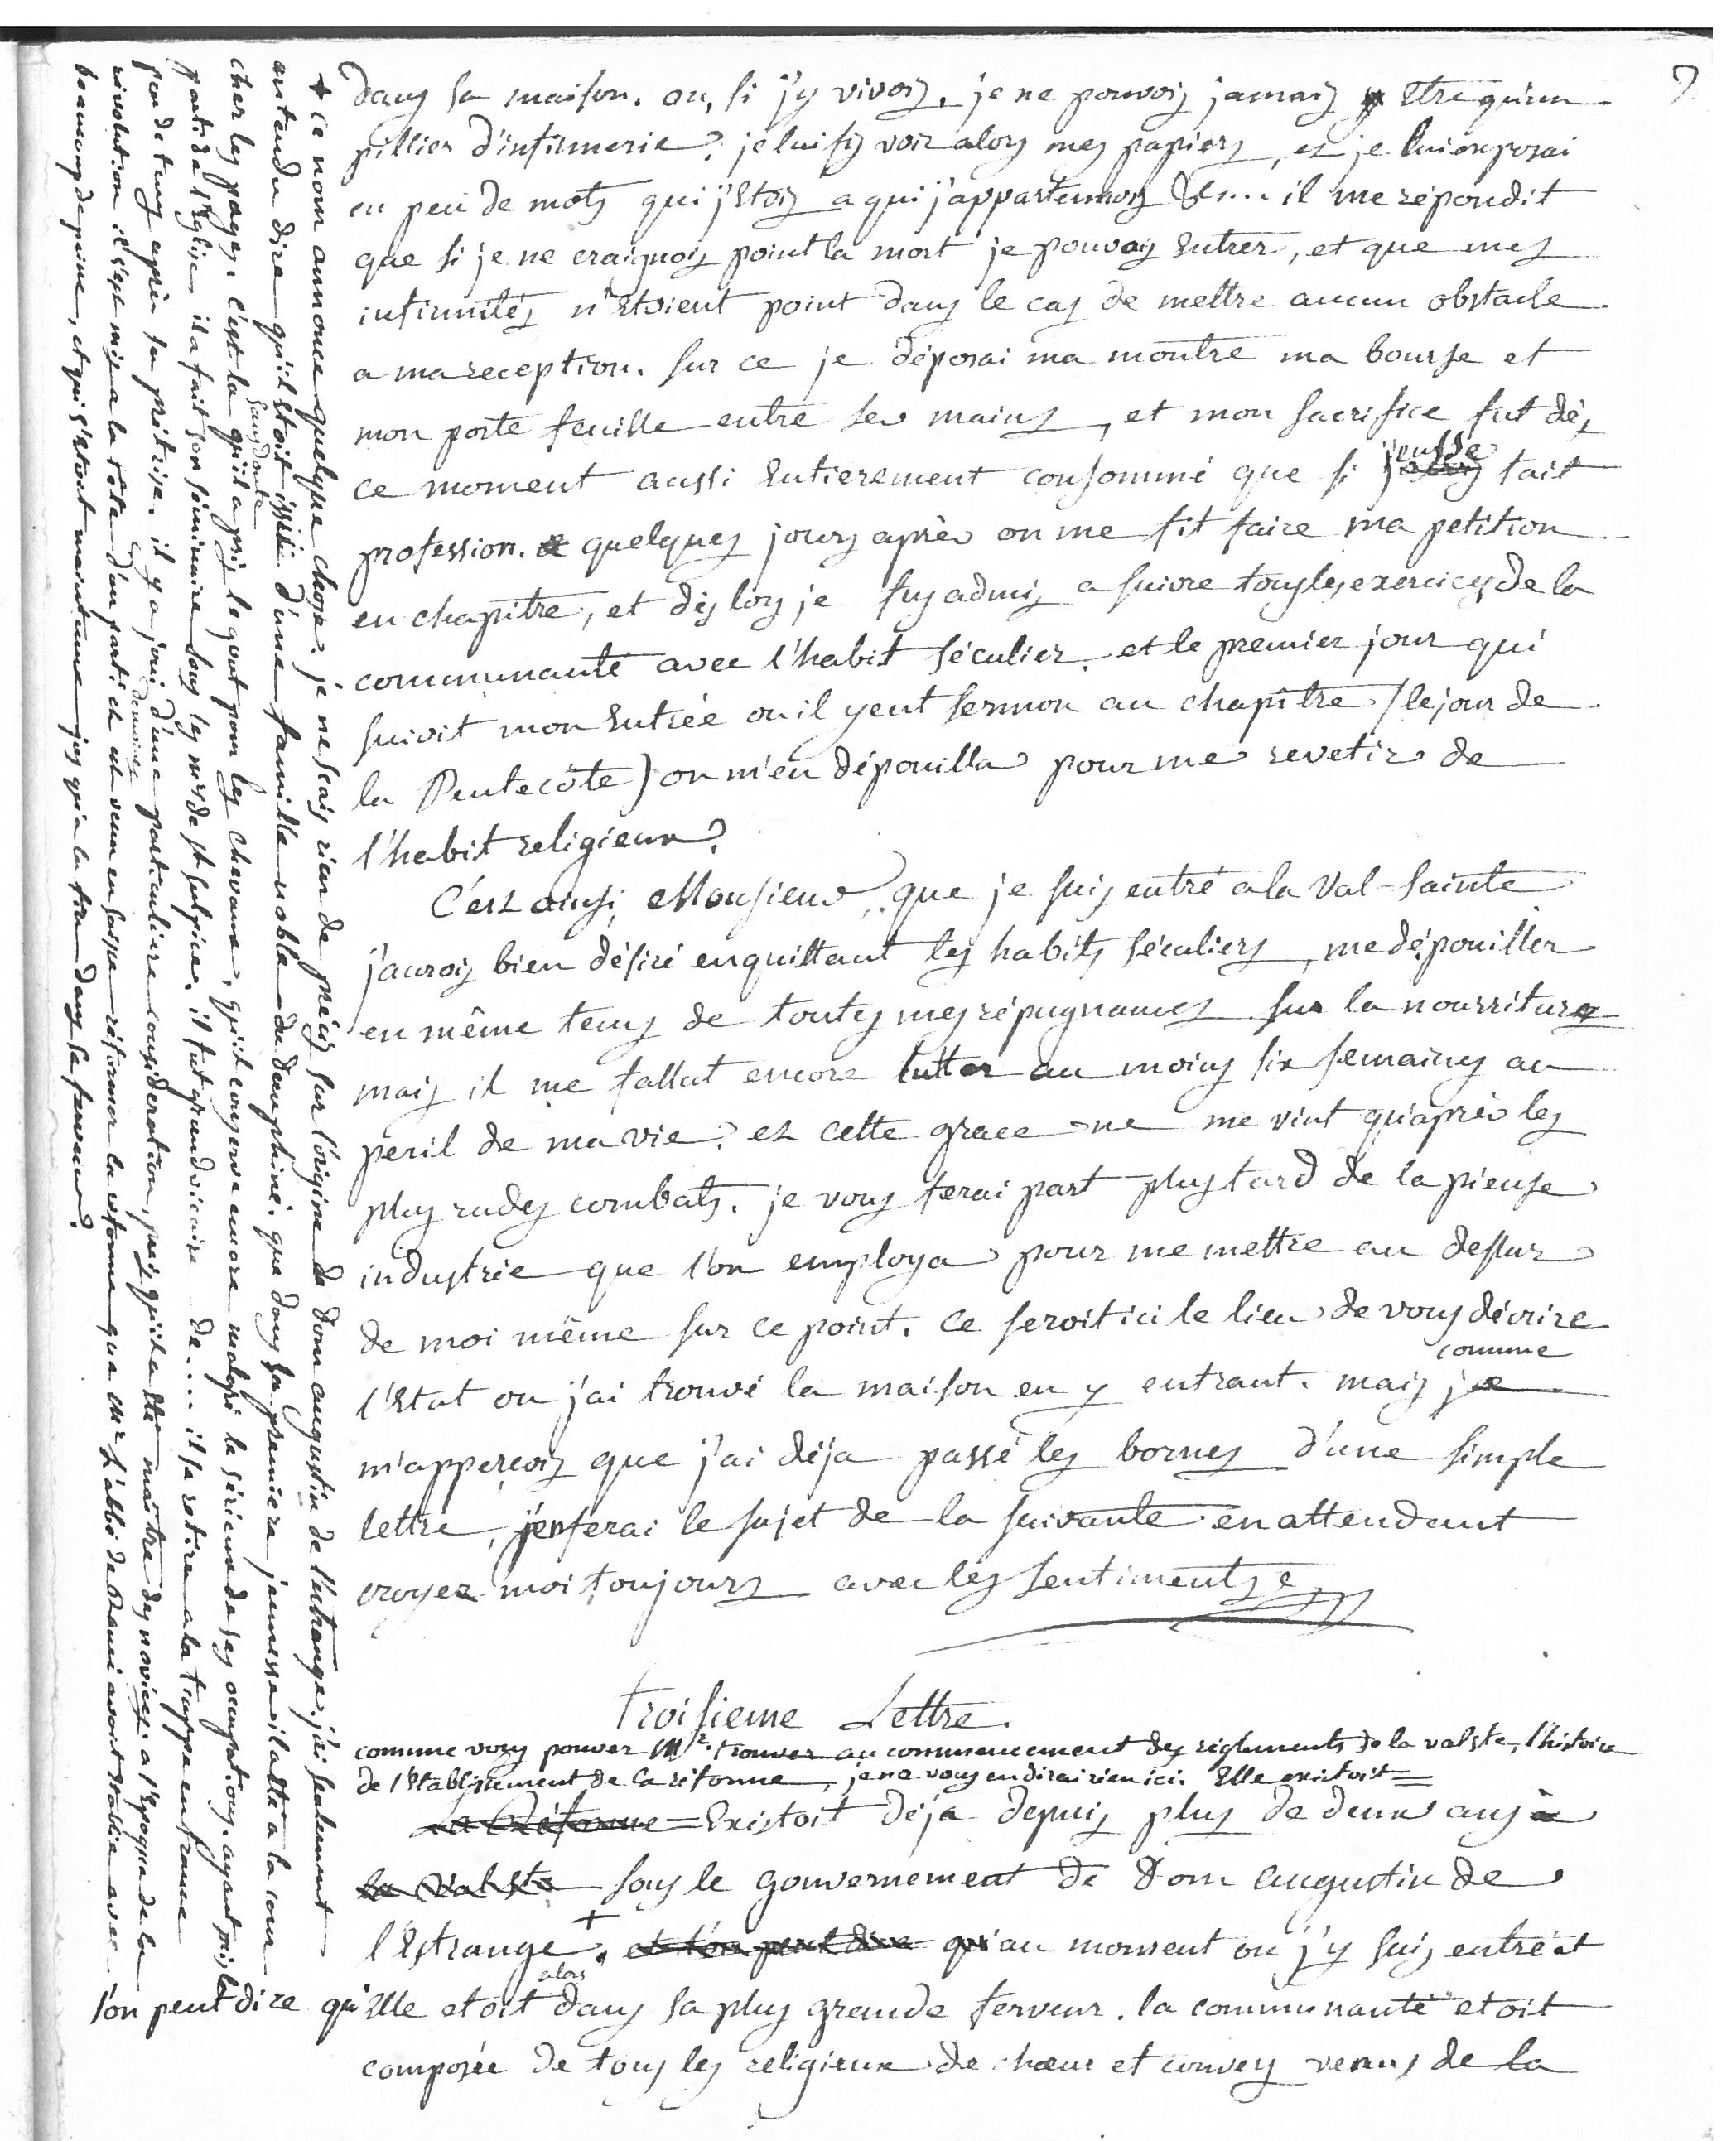 7
dans sa maison. ou, si j'y vivois, je ne pouvois jamais etre qu'un
pillier d'infirmerie. je lui fis voir alors mes papiers, et je lui exposai
en peu de mots qui j'etois a qui j'appartennois &c... il me répondit
que si je ne craignois point la mort je pouvois entrer, et que mes
infirmités n'etoient point dans le cas de mettre aucun obstacle
a ma reception. sur ce je déposai ma montre ma bourse et
mon porte feuille entre ses mains, et mon sacrifice fut dès
ce moment aussi entierement consommé que si j'eusse fait
profession. quelques jours après on me fit faire ma petition
en chapitre, et dès lors je fus admis a suivre tous les exercices de la
communauté avec l'habit séculier. et le premier jour qui
suivit mon entrée ou il y eut sermon au chapître (le jour de
la Pentecôte) on m'en dépouilla pour me revetir de
l'habit religieux.
C'est ainsi, Monsieur, que je suis entré a la Val-sainte
j'aurois bien désiré en quittant les habits séculiers, me dépouiller
en même tems de toutes mes répugnances sur la nourriture
mais il me fallut encore lutter au moins six semaines au
peril de ma vie. et cette grace ne me vint qu'après les
plus rudes combats. je vous ferai part plus tard de la pieuse
industrie que l'on employa pour me mettre au dessus
de moi même sur ce point. ce seroit ici le lieu de vous décrire
l'etat ou j'ai trouvé la maison en y entrant. mais comme je
m'apperçois que j'ai déja passé les bornes d'une simple
lettre, j'en ferai le sujet de la suivante en attendant
croyez moi toujours avec les sentiments &
Troisieme Lettre.
comme vous pouver Mr. trouver au commencement des reglements de la valste, l'histoire
de l'etablissement de la réforme, je ne vous en dirai rien ici. Elle existoit =
la Réforme = Existoit déja depuis plus de deux ans à
la Valste sous le gouvernement de Dom augustin de
l'Estrange. + et l'on peut dire qu'au moment ou j'y suis entré et
l'on peut dire qu'elle etoit alors dans sa plus grande ferveur. la communauté etoit
composée de tous les religieux de chœur et convers venus de la
+ ce nom annonce quelque chose. je ne scais rien de précis sur l'origine de dom augustin de l'estrange. j'ai seulement
entendu dire qu'il etoit issu d'une famille noble du dauphiné. que dans sa premiere jeunesse il alla a la cour
cher les pages. c'est la sans doute qu'il a pris le gout pour les chevaux, qu'il conserve encore malgré le sérieux de ses occupations. ayant pris le
parti de l'Eglise il a fait son séminaire sous les mrs de st sulpice. il fut grand vicaire de.... il se retira a la trappe en france
peu de tems après sa prêtrise. il y a joui d'une particuliere consideration, puis qu'il a été maitre des novices. a l'epoque de la
révolution il s'est mis a la tête d'un parti de moines et est venu en suisse réformer la reforme que Mr l'abbé de Rancé avoit etablie avec
beaucoup de peine, et qui s'etoit maintenue jusqu'a la fin dans sa ferveur.